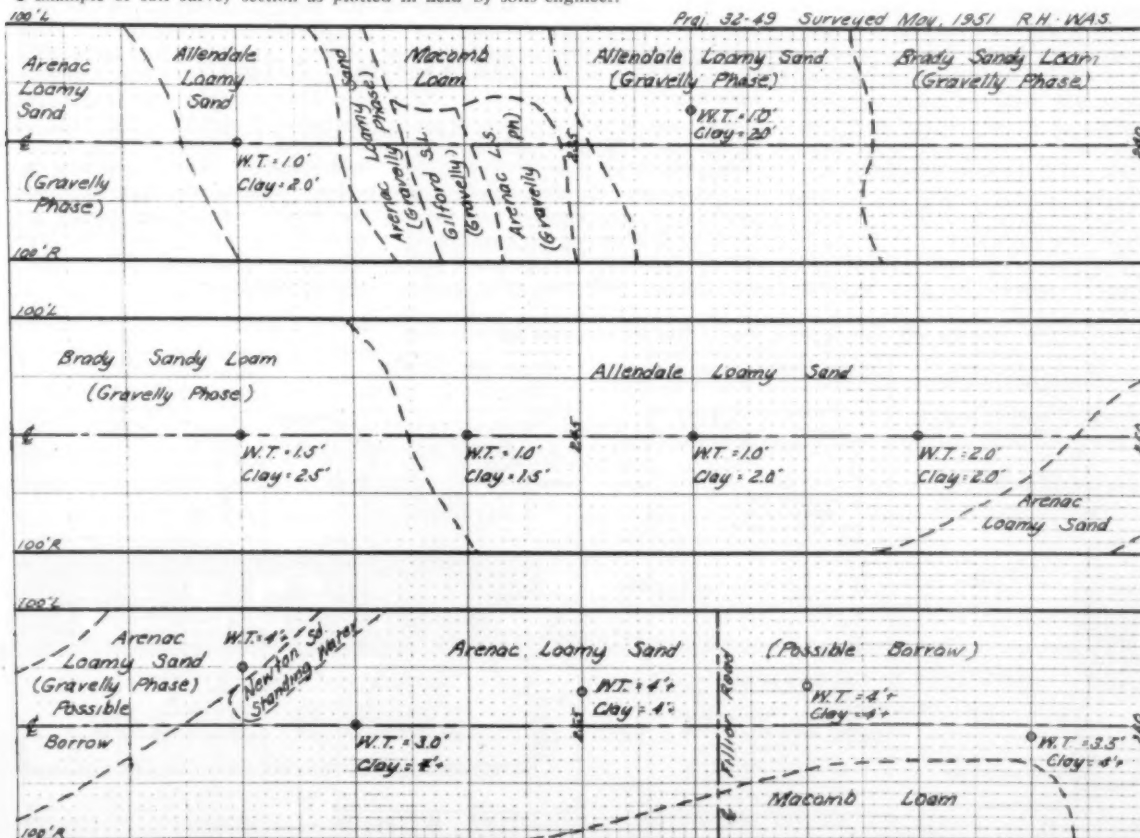 Example of soil survey section as plotted in field by soils engineer.
Proj. 32-49 Surveyed May, 1951 R.H.-WAS.
100'L
Arenac
Loamy
Sand
(Gravelly
Phase)
Allendale
Loamy
Sand
W.T.=1.0'
Clay=2.0'
Arenac Loamy Sand
(Gravelly Phase)
Macomb
Loam
Gilford S.L.
(Gravelly)
Arenac L.S.
(Gravelly ph)
Allendale Loamy Sand
(Gravelly Phase)
W.T.=1.0'
Clay=2.0'
Brady Sandy Loam
(Gravelly Phase)
℄
235
240
100'R
100'L
Brady Sandy Loam
(Gravelly Phase)
Allendale Loamy Sand
℄
W.T.=1.5'
Clay=2.5'
W.T.=1.0'
Clay=1.5'
245
W.T.=1.0'
Clay=2.0'
W.T.=2.0'
Clay=2.0'
Arenac
Loamy Sand
100'R
100'L
Arenac
Loamy Sand
(Gravelly Phase)
Possible
Borrow
W.T.=4'+
Newton Sd.
Standing Water
Arenac Loamy Sand
(Possible Borrow)
W.T.=4'+
Clay=4'+
W.T.=4'+
Clay=4'+
℄
W.T.=3.0'
Clay=4'+
℄ Fillior Road
W.T.=3.5'
Clay=4'+
Macomb Loam
100'R